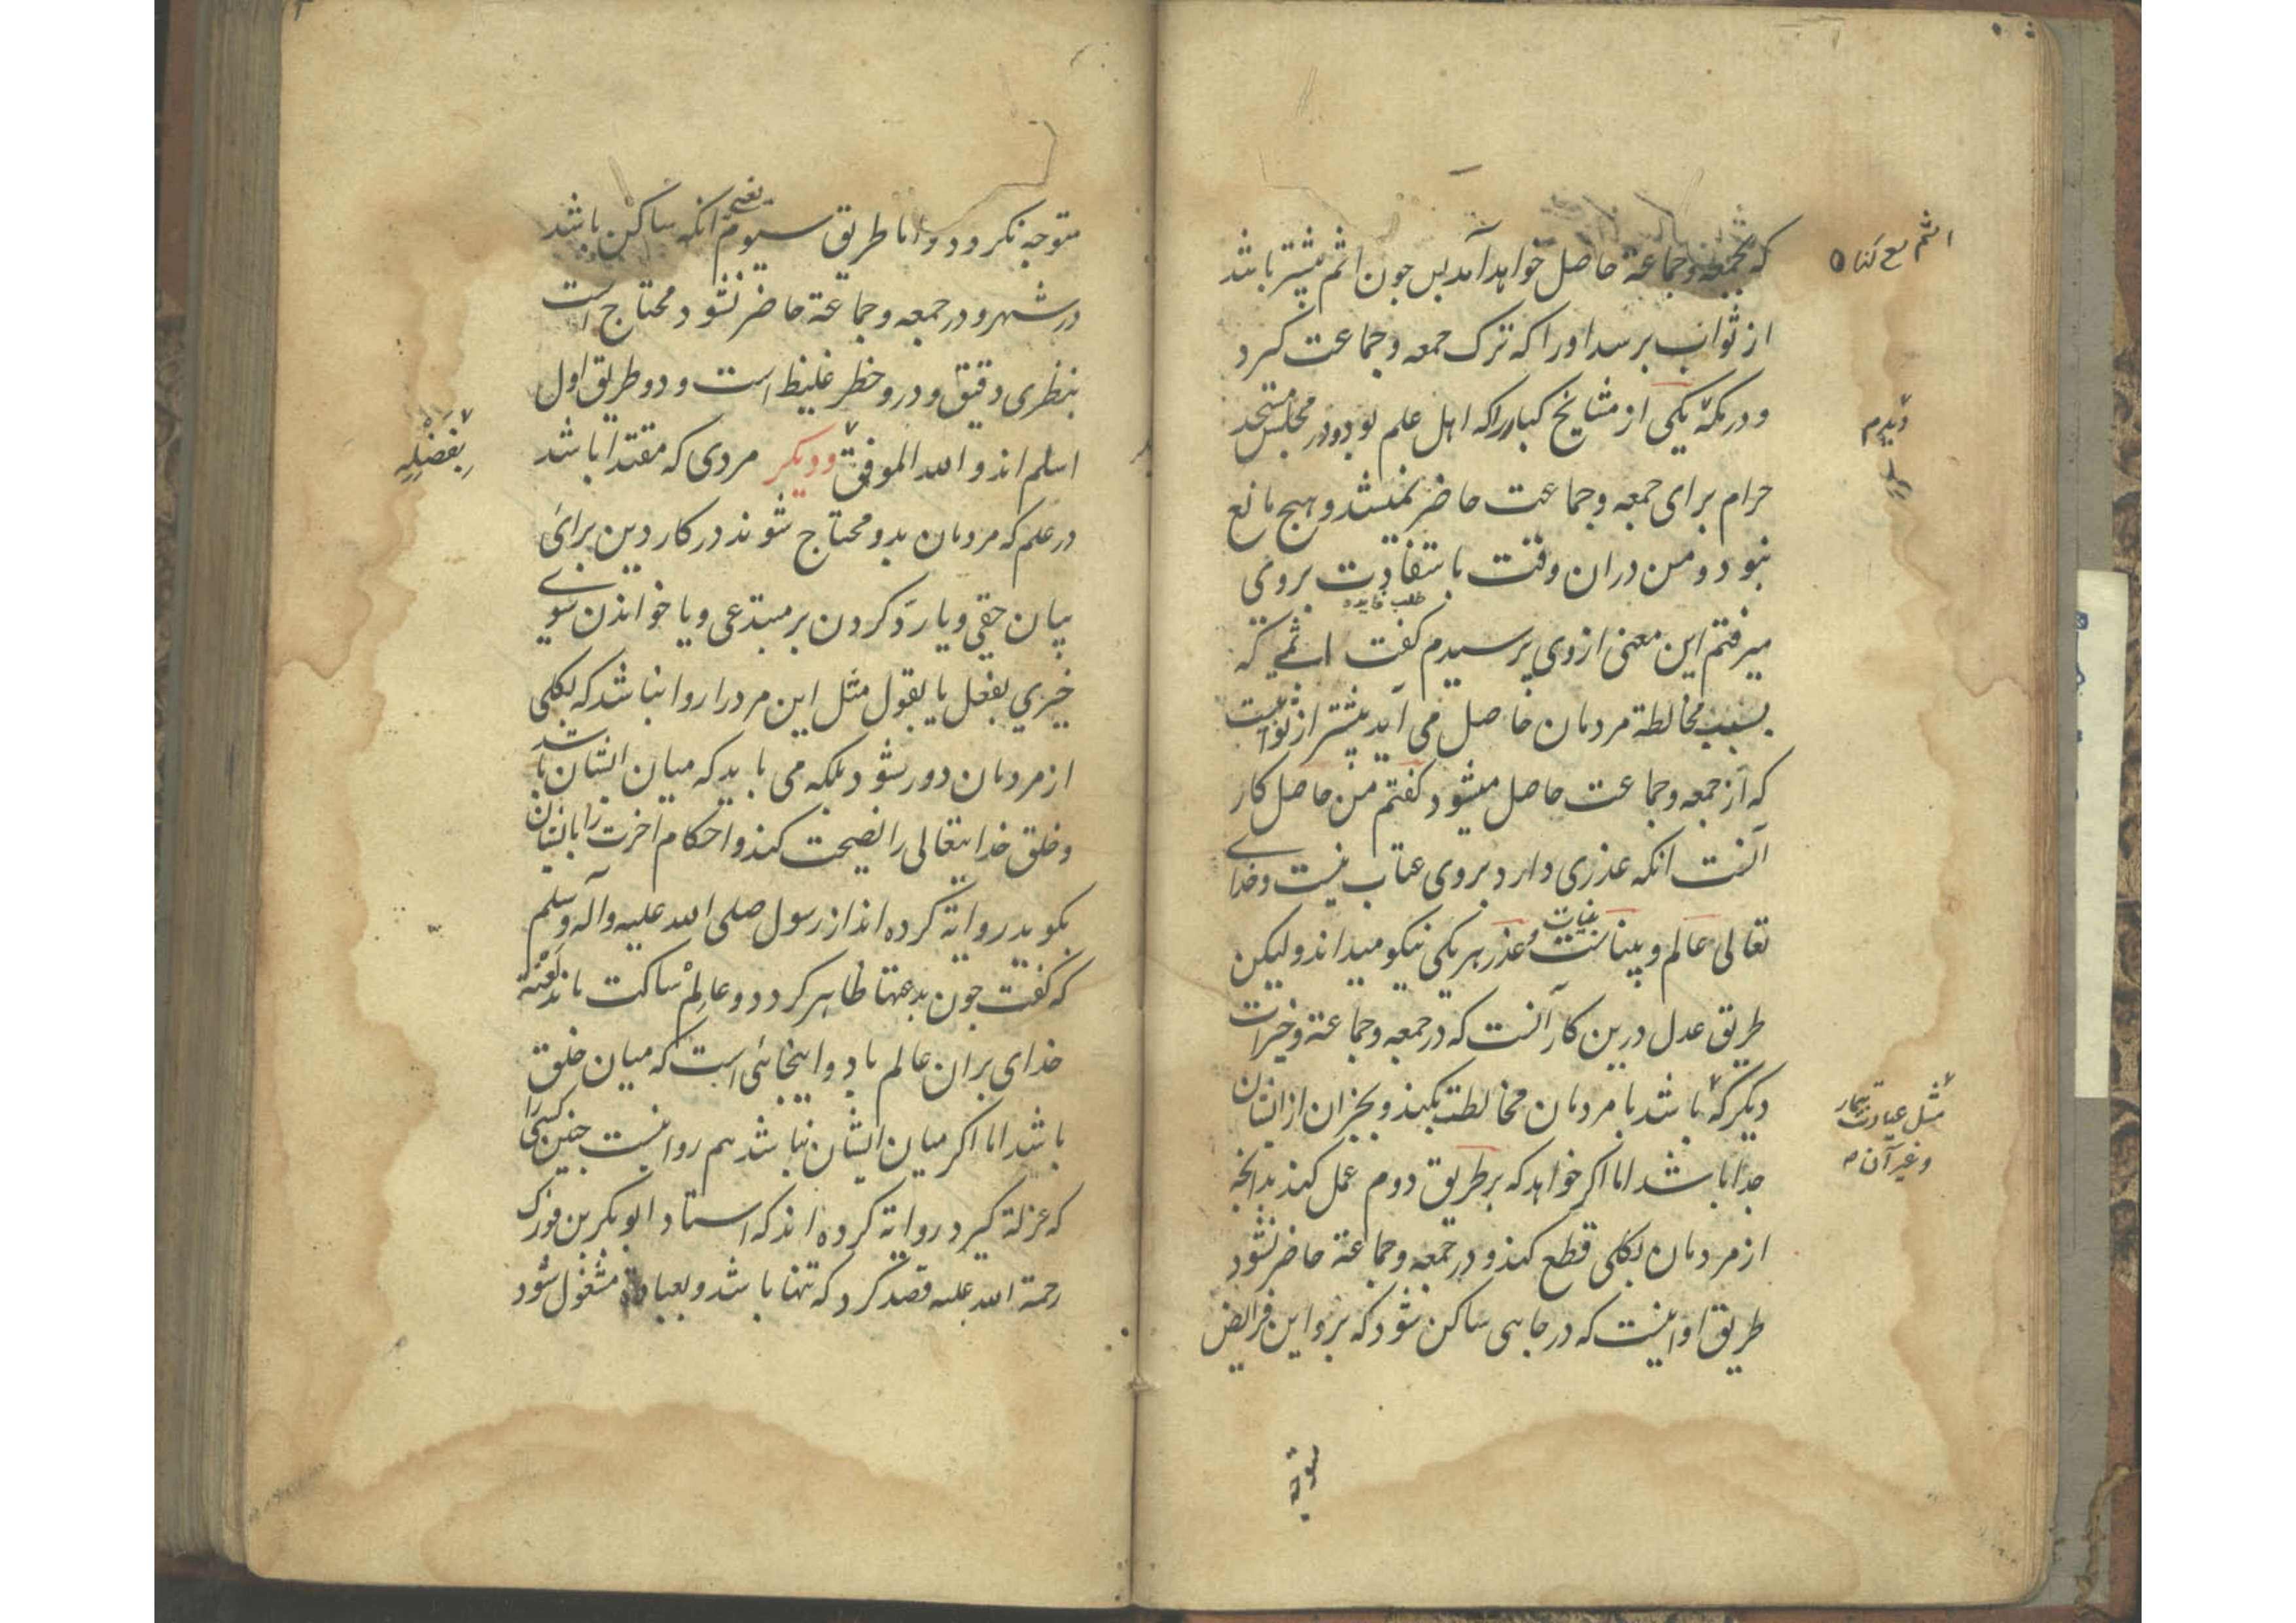 که بجمعه و جماعة حاصل خواهد آمد پس چون اثم بیشتر باشد
اثم مع کناه
از ثواب برسد او را که ترک جمعه و جماعت کیرد
و در مکه یکی از مشایخ کبار را که اهل علم بود و در مجلس مسجد
دیدم
حرام برای جمعه و جماعت حاضر نمیشد و هیچ مانع
نبود و من دران وقت باستفادت بروی
طلب فایده
میرفتم این معنی از وی پرسیدم کفت اثمی که
بسبب مخالطة مردمان حاصل می آید بیشتر از ثوابیست
که از جمعه و جماعت حاصل میشود کفتم من حاصل کار
آنست انکه عذری دارد بروی عتاب نیست و خدای
تعالی عالم و بیناست و عذر هر یکی نیکو میداند و لیکن
طریق عدل درین کار آنست که در جمعه و جماعة و خیرات
دیکر که باشد با مردمان مخالطت بکند و بجز ان از ایشان
مثل عیادت بیمار
و غیر آن
جدا باشد اما اکر خواهد که بر طریق دوم عمل کند بدانچه
از مردمان بکلی قطع کند و در جمعه و جماعة حاضر نشود
طریق او اینست که در جایی ساکن شود که برو این فرایض
متوجه
متوجه نکردد و اما طریق سیوم انکه ساکن باشد
یعنی
در شهر و در جمعه و جماعة حاضر نشود محتاج است
بنظری دقیق و درو خطر غلیظ است و دو طریق اول
اسلم اند و الله الموفق و دیکر مردی که مقتدا باشد
بفضله
در علم که مردمان بدو محتاج شوند در کار دین برای
بیان حقی و یا رد کردن بر مبتدعی و یا خواندن سوی
خیری بفعل یا بقول مثل این مرد را روا نباشد که بکلی
از مردمان دور شود بلکه می باید که میان ایشان باشد
و خلق خدایتعالی را نصیحت کند و احکام اخرت را بایشان
بکوید روایة کرده اند از رسول صلی الله علیه و آله و سلم
که کفت چون بدعتها ظاهر کردد و عالم ساکت ماند لعنة
خدای بران عالم باد و اینجائی است که میان خلق
باشد اما اکر میان ایشان نباشد هم روا نیست چنین کسی را
که عزلة کیرد روایة کرده اند که استاد ابو بکر بن فورک
رحمة الله علیه قصد کرد که تنها باشد و بعبادة مشغول شود